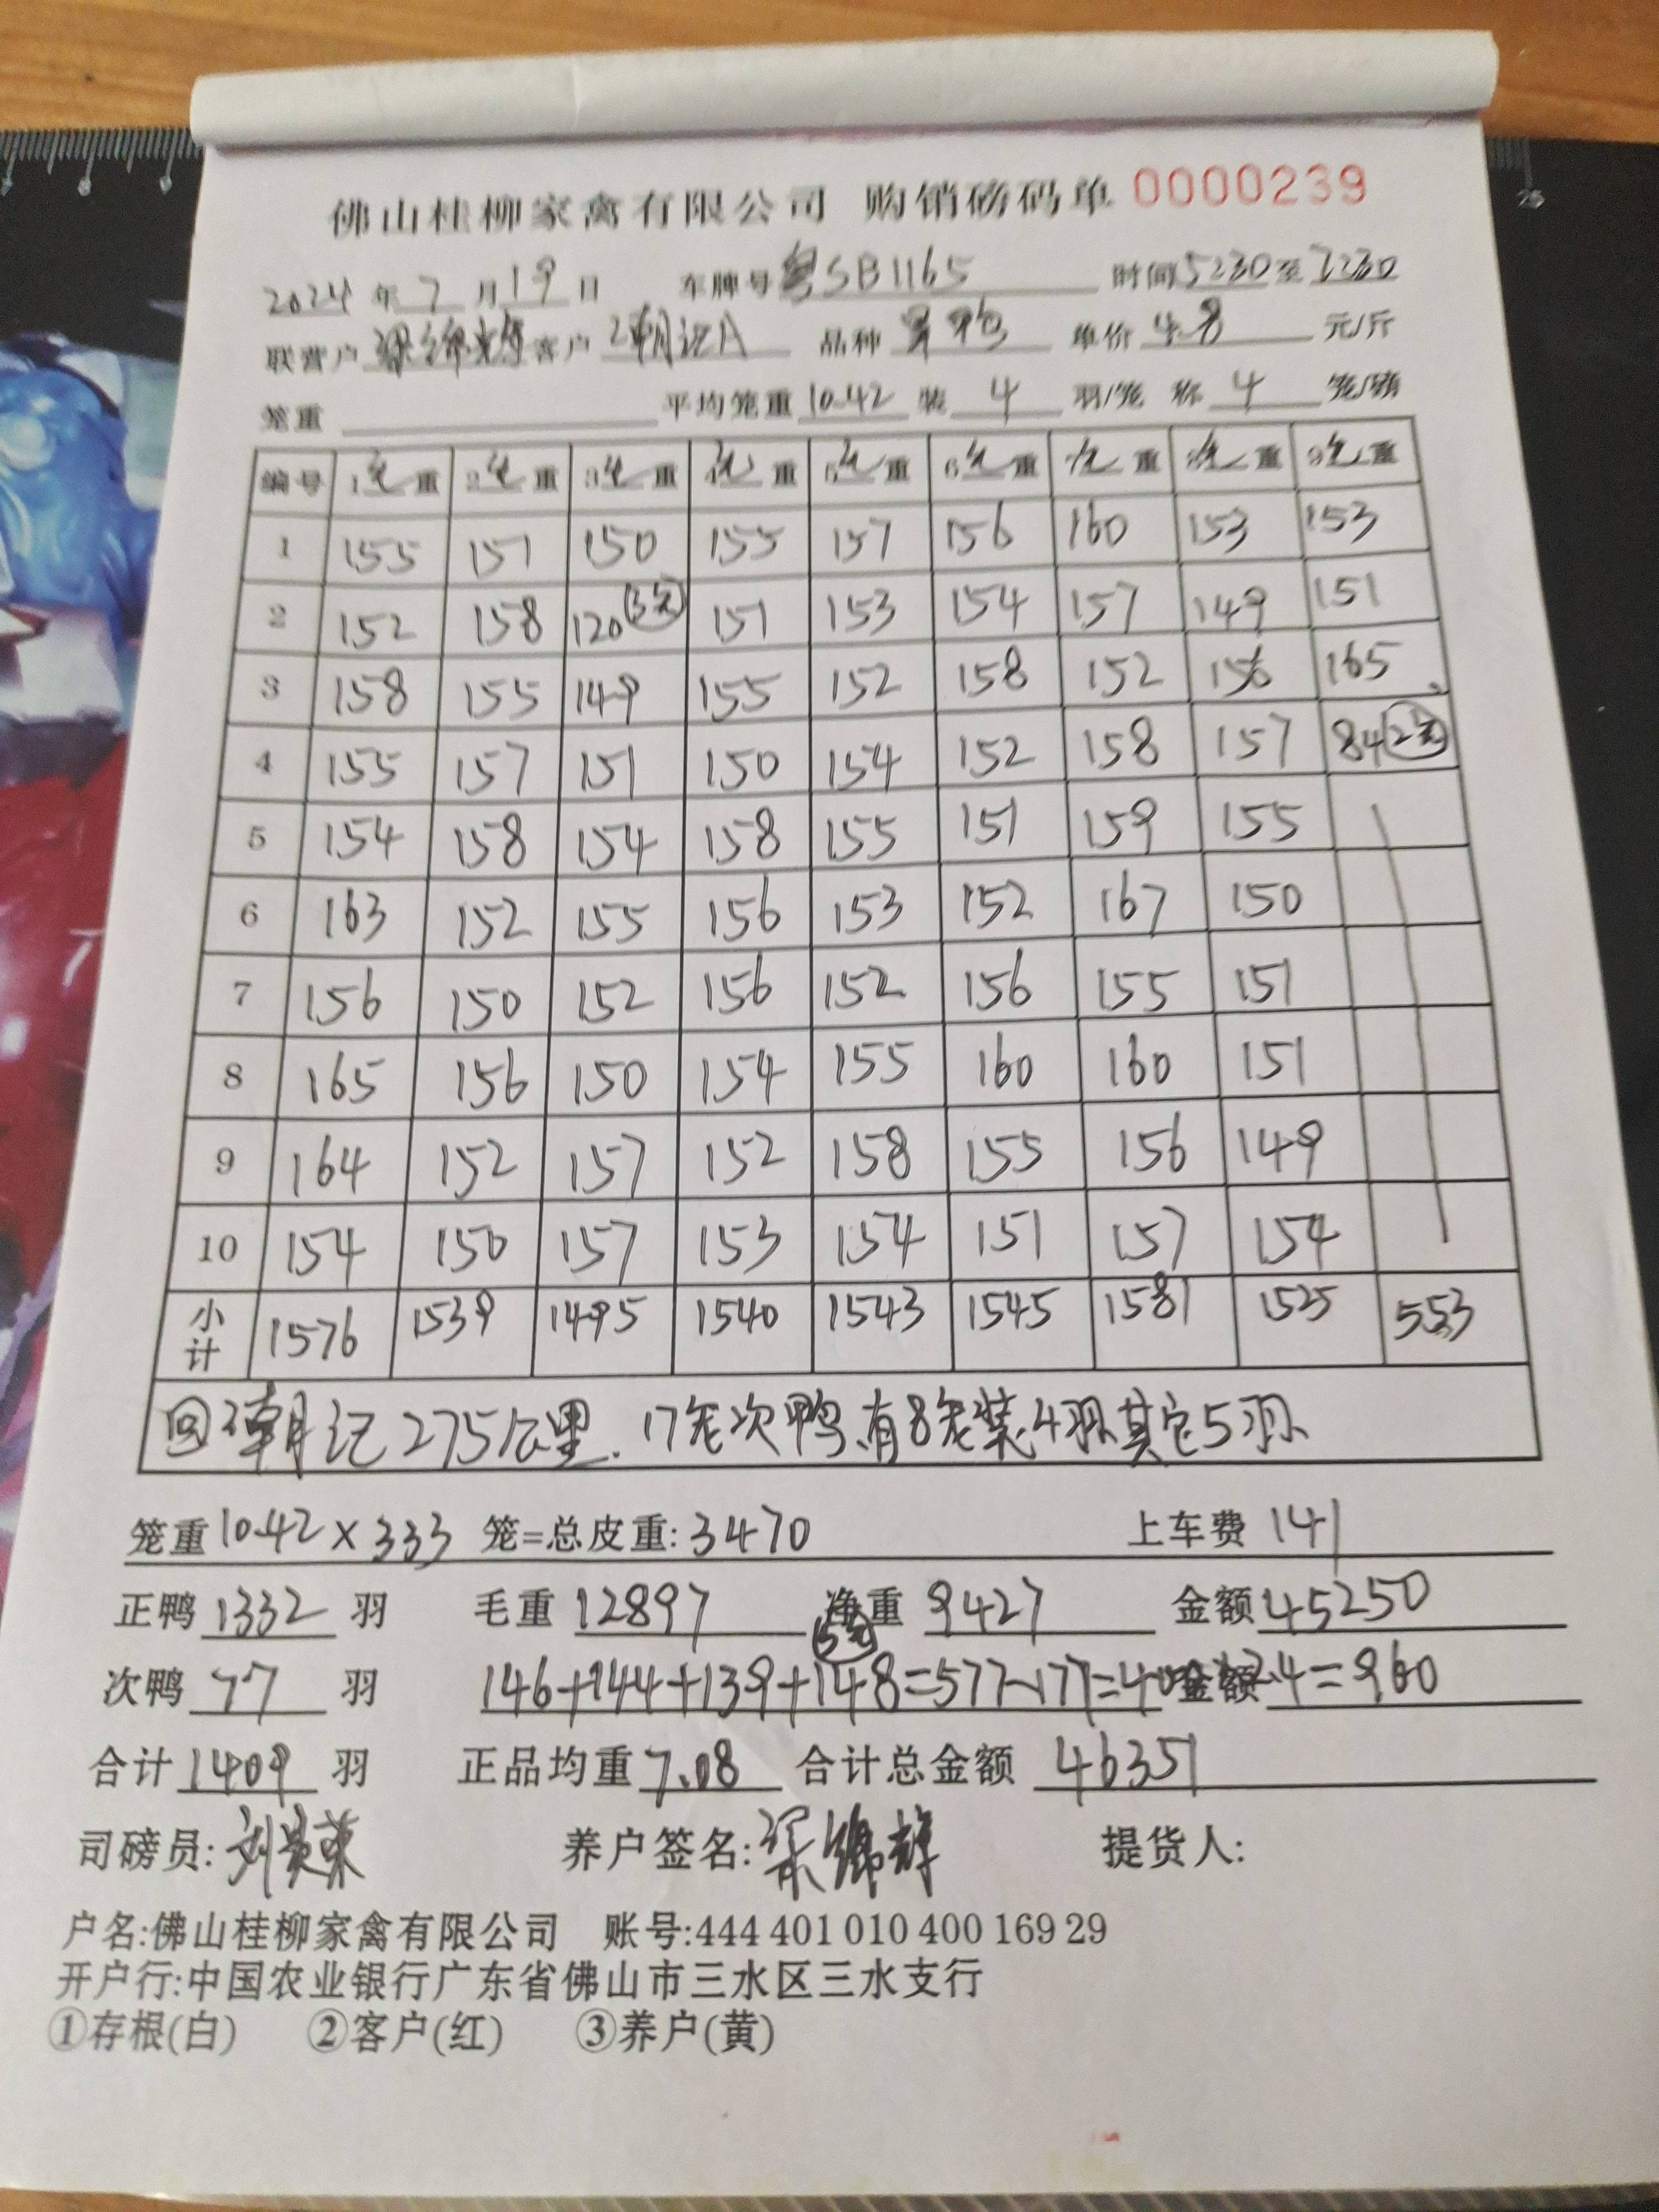 佛山桂柳家禽有限公司 购销磅码单 0000239
2024年7月19日 车牌号粤SB1165 时间5:30至7:30
联营户梁锦辉 客户 朝记A 品种 单价4.8元/斤
笼重 平均笼重10.42 装4羽/笼 称4笼/磅
编号 1笼重 2笼重 3笼重 4笼重 5笼重 6笼重 7笼重 8笼重 9笼重
1 155 151 150 155 157 156 160 153 153
2 152 158 120(3笼) 151 153 154 157 149 151
3 158 155 149 155 152 158 152 156 165
4 155 157 151 150 154 152 158 157 84(2笼)
5 154 158 154 158 155 151 159 155
6 163 152 155 156 153 152 167 150
7 156 150 152 156 152 156 155 151
8 165 156 150 154 155 160 160 151
9 164 152 157 152 158 155 156 149
10 154 150 157 153 154 151 157 154
小计 1576 1539 1495 1540 1543 1545 1581 1525 553
回朝记275公里.17笼次鸭,有8笼装4羽其它5羽
笼重10.42×333笼=总皮重:3470 上车费141
正鸭1332羽 毛重12897 净重9427 金额45250
(5笼)
次鸭77羽 146+144+139+148=577-177=400×2.4=960 金额
合计1409羽 正品均重7.08 合计总金额46351
司磅员:刘 养户签名:梁锦辉 提货人:
户名:佛山桂柳家禽有限公司 账号:444 401 010 400 169 29
开户行:中国农业银行广东省佛山市三水区三水支行
①存根(白) ②客户(红) ③养户(黄)